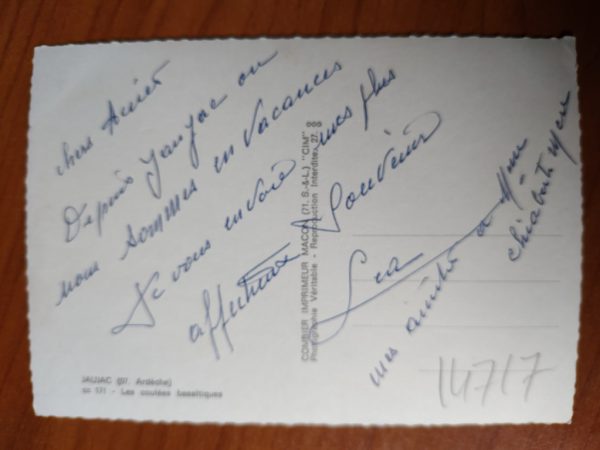 chers Amies
Depuis Jaujac ou
nous sommes en vacances
Je vous envoie mes plus
affectueux Souvenirs
Lea
mes amitiés a Mme
JAUJAC (07. Ardèche)
171 - Les coulées basaltiques
COMBIER IMPRIMEUR MACON (71, S.-&-L.) "CIM"
Photographie Véritable - Reproduction Interdite.
14717